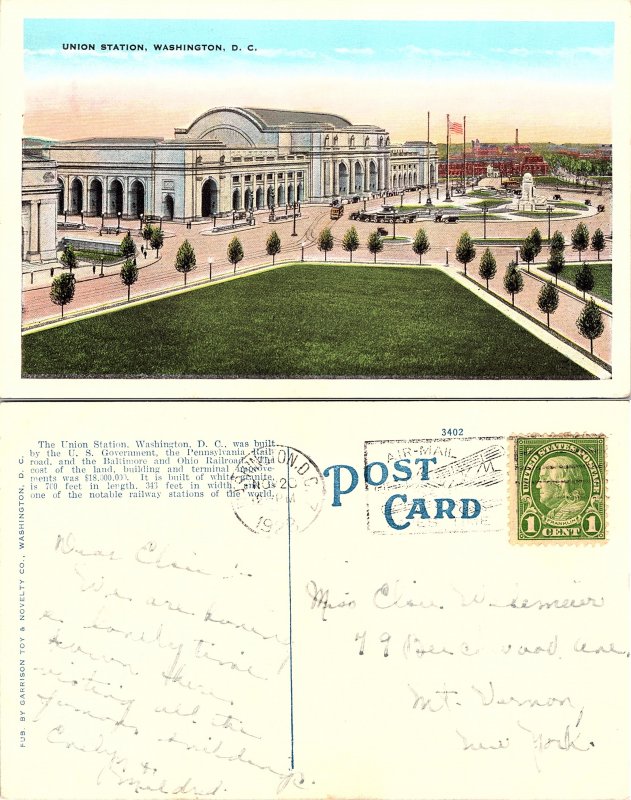 UNION STATION, WASHINGTON, D. C.
3402
The Union Station, Washington, D. C., was built
by the U. S. Government, the Pennsylvania Rail-
road, and the Baltimore and Ohio Railroad. The
cost of the land, building and terminal improve-
ments was $18,000,000. It is built of white granite,
is 760 feet in length, 343 feet in width, and is
one of the notable railway stations of the world.
PUB. BY GARRISON TOY & NOVELTY CO., WASHINGTON, D. C.
WASHINGTON, D.C.
20
PM
AIR-MAIL
POST
CARD
UNITED STATES POSTAGE
FRANKLIN
1 CENT 1
Dear Clair :-
We are having
a lovely time
down here
visiting all the
famous buildings.
&
Mildred.
Miss Clair
79 Beechwood Ave,
Mt. Vernon,
New York.